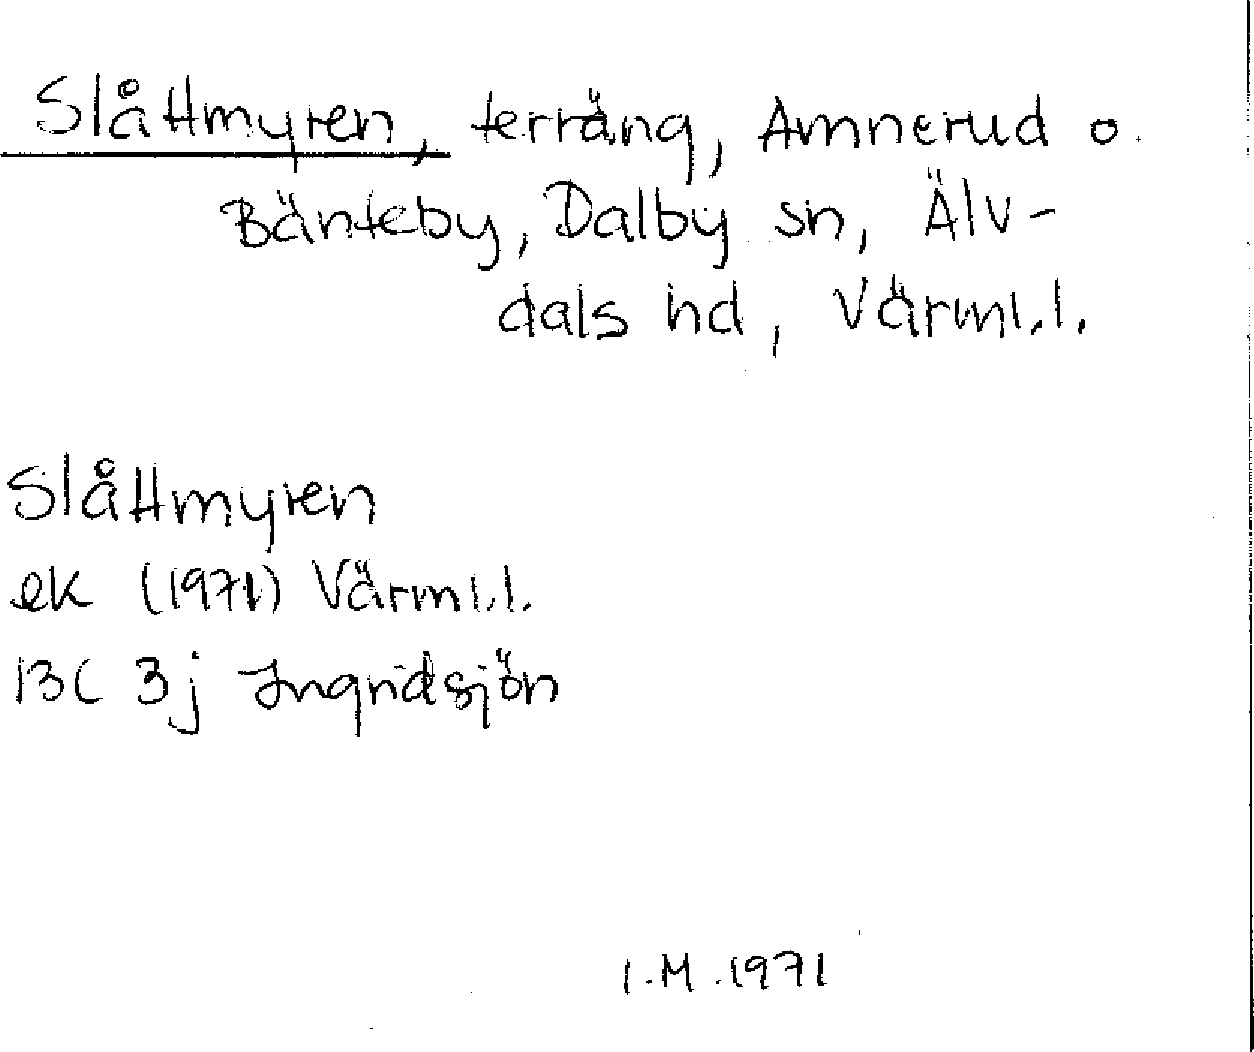 Slåttmyren, terräng, Amnerud o.
Bänteby, Dalby sn, Älv-
dals hd, Värml.l.
Slåttmyren
ek (1971) Värml.l.
13C 3j Ingridsjön
I.M.1971